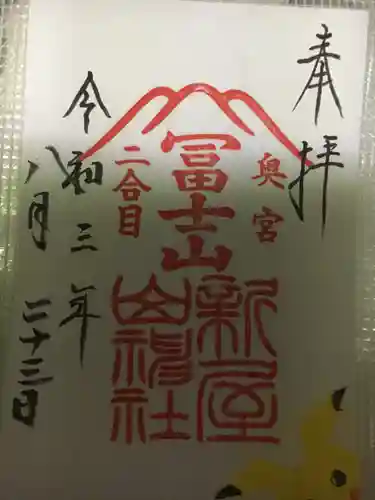 奉拝
奥宮
冨士山
二合目
新屋
山神社
令和三年
八月二十三日